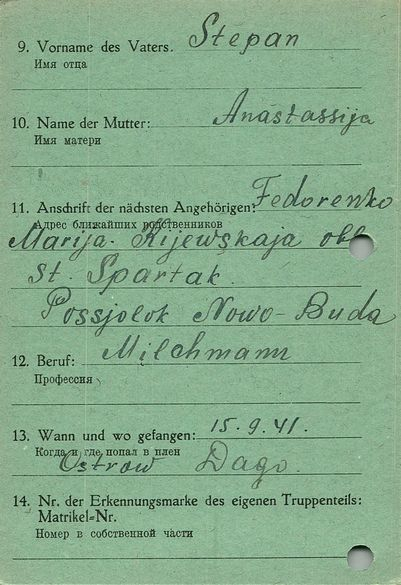 9. Vorname des Vaters. Stepan
Имя отца
10. Name der Mutter: Anastassija
Имя матери
11. Anschrift der nächsten Angehörigen: Fedorenko
Адрес ближайших родственников
Marija. Kijewskaja obl
St. Spartak.
Possjolok Nowo-Buda
12. Beruf: Milchmann
Профессия
13. Wann und wo gefangen: 15.9.41.
Когда и где попал в плен
Ostrow Dago.
14. Nr. der Erkennungsmarke des eigenen Truppenteils:
Matrikel-Nr.
Номер в собственной части